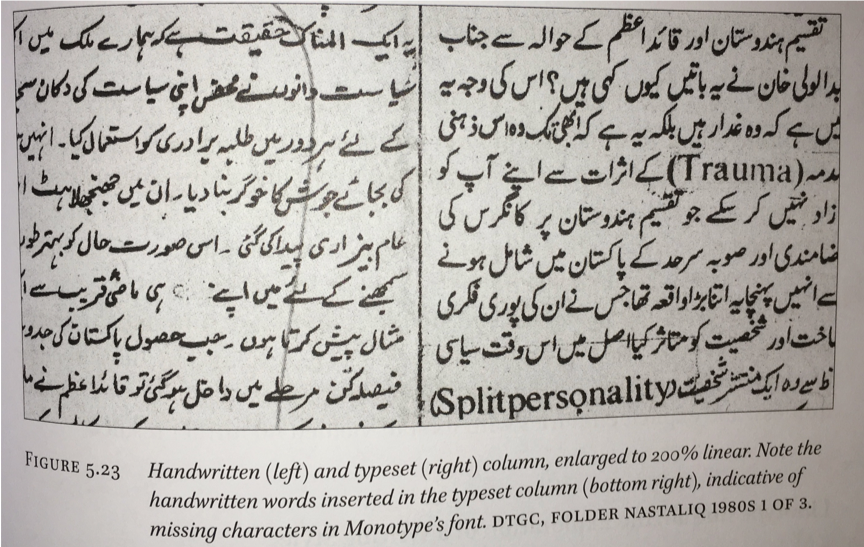 تقسیم ہندوستان اور قائد اعظم کے حوالہ سے جناب
بدالولی خان نے یہ باتیں کیوں کہی ہیں؟ اس کی وجہ یہ
یں ہے کہ وہ غدار ہیں بلکہ یہ ہے کہ ابھی تک وہ اس ذہنی
دمہ (Trauma) کے اثرات سے اپنے آپ کو
زاد نہیں کر سکے جو تقسیم ہندوستان پر کانگرس کی
ضامندی اور صوبہ سرحد کے پاکستان میں شامل ہونے
سے انہیں پہنچا یہ اتنا بڑا واقعہ تھا جس نے ان کی پوری فکری
اخت اور شخصیت کو متاثر کیا اصل میں اس وقت سیاسی
اظ سے وہ ایک منتشر شخصیت (Splitpersonality)
یہ ایک المناک حقیقت ہے کہ ہمارے ملک میں
سیاست دانوں نے محض اپنی سیاست کی دکان
کے لئے ہر دور میں طلبہ برادری کو استعمال کیا۔ انہیں
کی بجائے جوش کا خوگر بنا دیا۔ ان میں جھنجھلاہٹ
عام بیزاری پیدا کی گئی۔ اس صورت حال کو بہتر طور
سمجھنے کے لئے میں اپنے ہی ماضی قریب سے
مثال پیش کرتا ہوں۔ جب حصول پاکستان کی جدو
فیصلہ کن مرحلے میں داخل ہو گئی تو قائد اعظم نے
FIGURE 5.23 Handwritten (left) and typeset (right) column, enlarged to 200% linear. Note the
handwritten words inserted in the typeset column (bottom right), indicative of
missing characters in Monotype's font. DTGC, FOLDER NASTALIQ 1980S 1 OF 3.